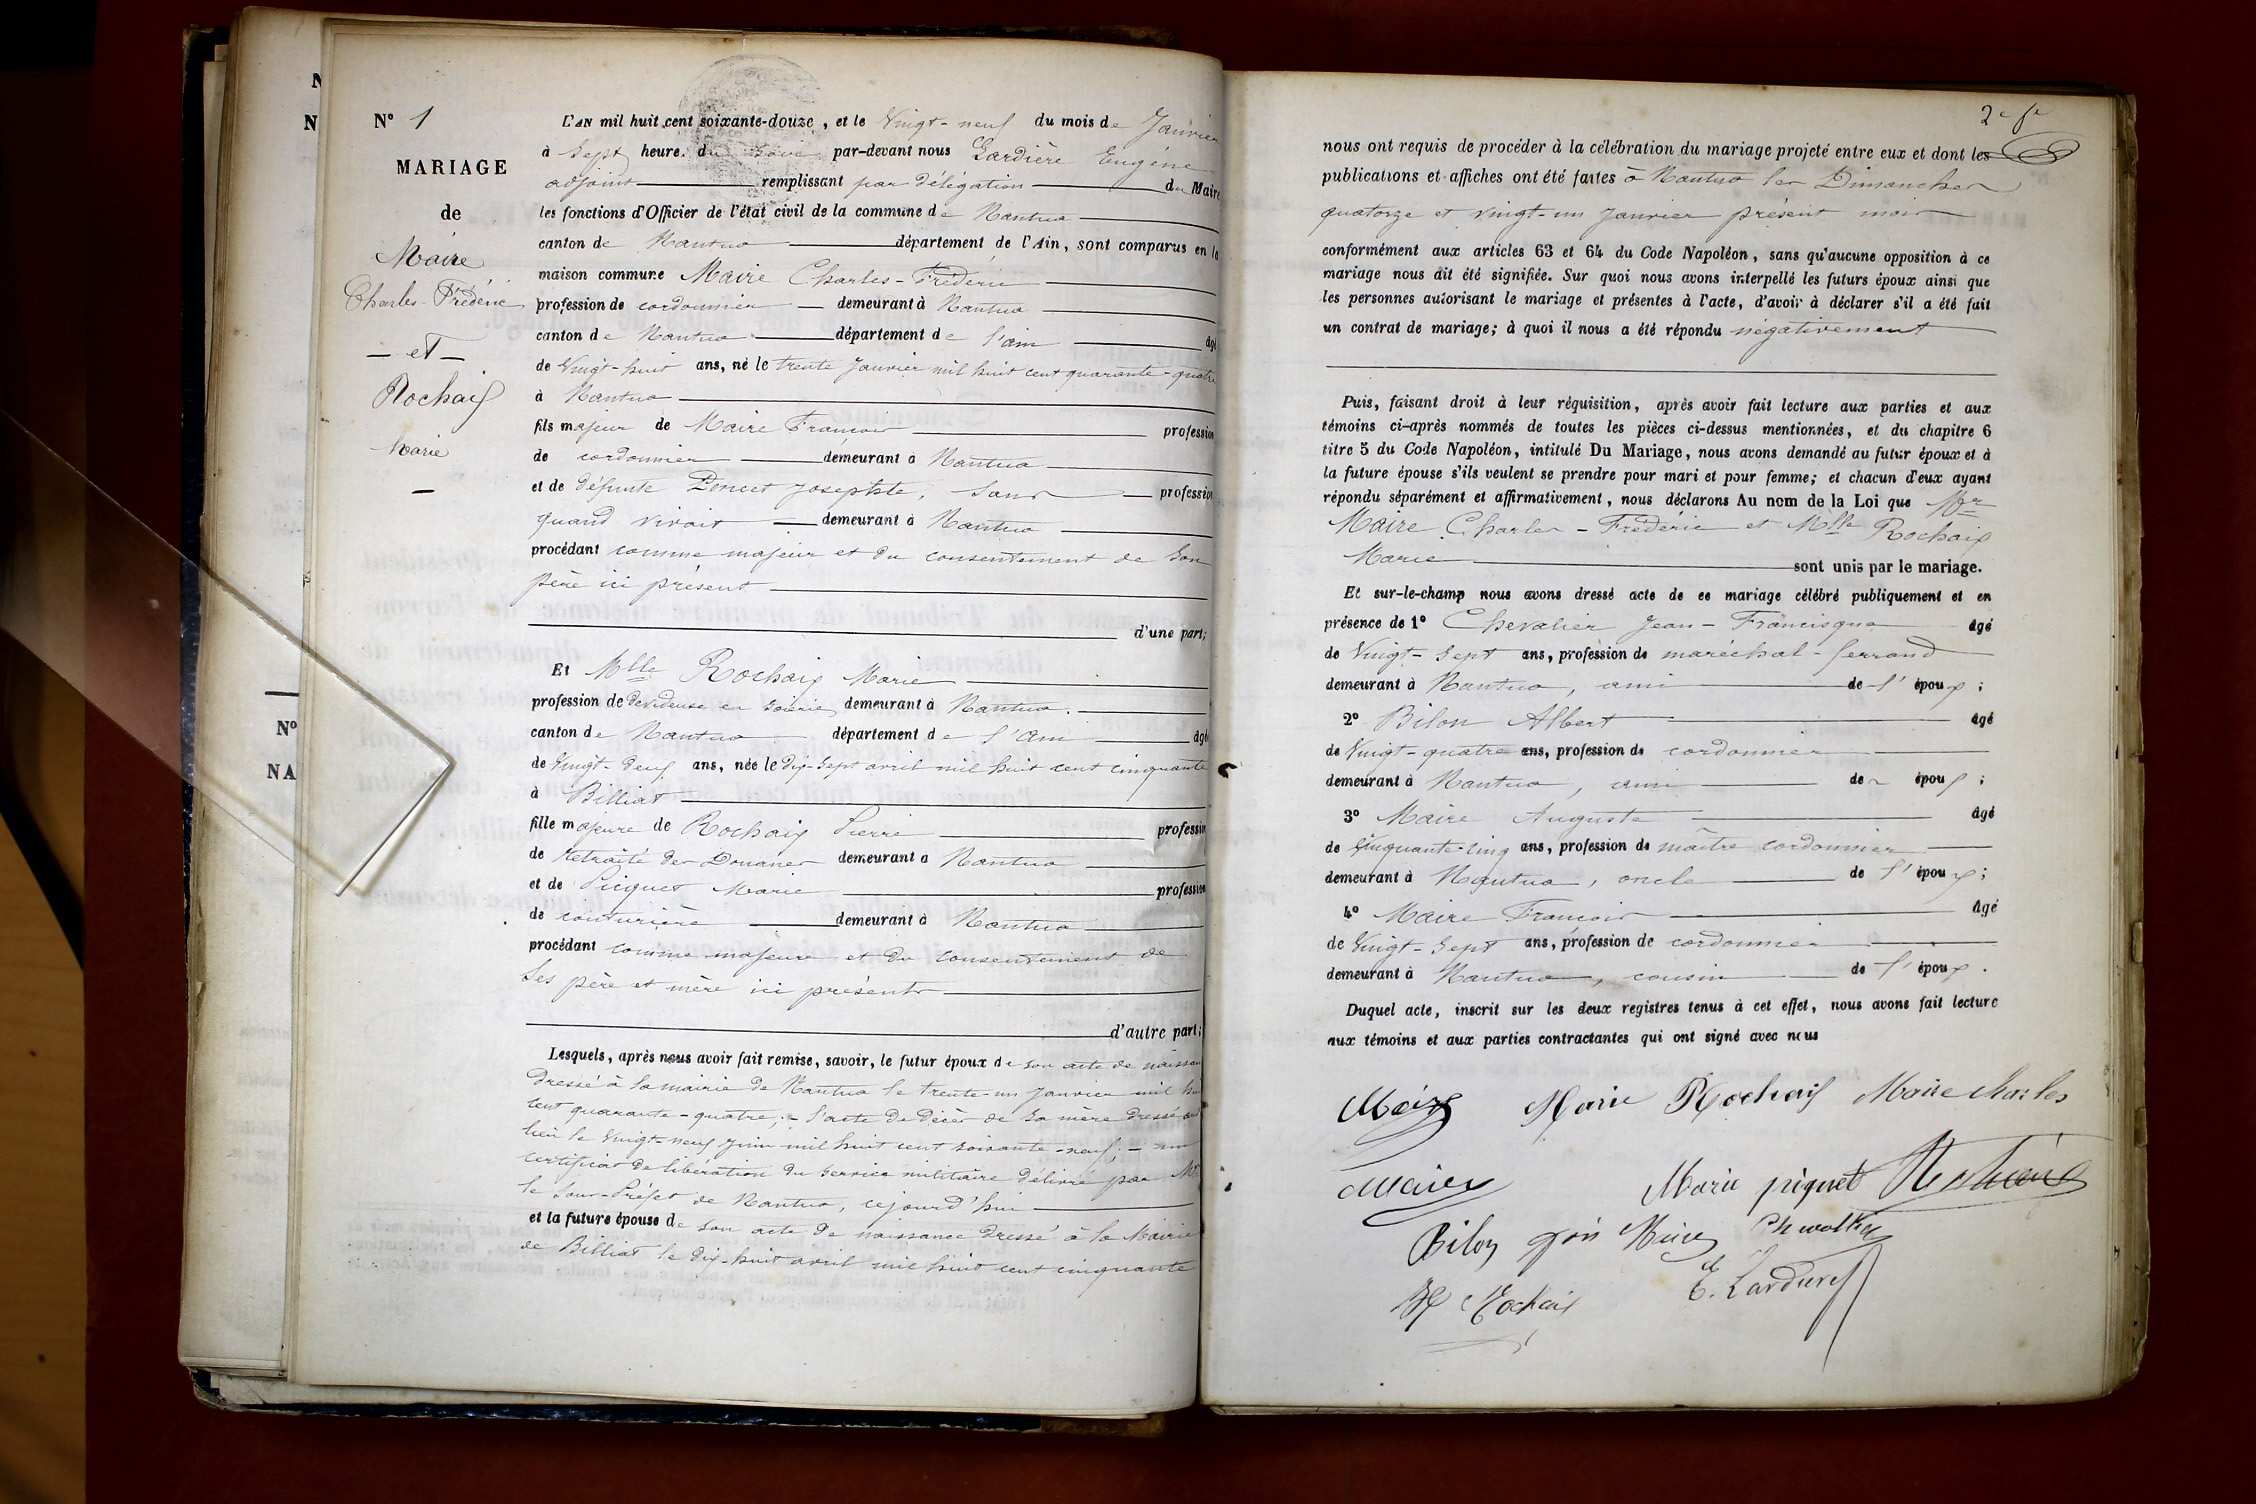 N
N
Nº
NA
Nº 1
MARIAGE
de
Maire
Charles-Frédéric
- et -
Rochaix
Marie
-
L'AN mil huit cent soixante-douze, et le Vingt-neuf du mois de Janvier
à Sept heure. du soir par-devant nous Eugène
adjoint remplissant par délégation du Maire
les fonctions d'Officier de l'état civil de la commune de Nantua
canton de Nantua département de l'Ain, sont comparus en la
maison commune Maire Charles-Frédéric
profession de cordonnier demeurant à Nantua
canton de Nantua département de l'ain âgé
de Vingt-huit ans, né le trente Janvier mil huit cent quarante-quatre
à Nantua
fils majeur de Maire François profession
de cordonnier demeurant à Nantua
et de défunte Poncet Josephte, sans profession
quand vivait demeurant à Nantua
procédant comme majeur et du consentement de son
père ici présent
d'une part;
Et Mlle Rochaix Marie
profession de devideuse en soierie demeurant à Nantua.
canton de Nantua département de l'Ain âgée
de Vingt-deux ans, née le dix-sept avril mil huit cent cinquante
à Billiat
fille majeure de Rochaix Pierre profession
de retraité des Douanes demeurant à Nantua
et de Picquet Marie profession
de couturière demeurant à Nantua
procédant comme majeure et du consentement de
ses père et mère ici présents
d'autre part;
Lesquels, après nous avoir fait remise, savoir, le futur époux de son acte de naissan
dressé à la mairie de Nantua le trente-un Janvier mil hui
cent quarante-quatre; - l'acte de décès de sa mère dressé au
lieu le Vingt-neuf juin mil huit cent soixante-neuf; - un
certificat de libération du service militaire délivré par Mr
le Sous-Préfet de Nantua, cejourd'hui
et la future épouse de son acte de naissance dressé à la Mairie
de Billiat le dix-huit avril mil huit cent cinquante
2e fe
nous ont requis de procéder à la célébration du mariage projeté entre eux et dont les
publications et affiches ont été faites à Nantua les Dimanches
quatorze et vingt-un Janvier présent mois
conformément aux articles 63 et 64 du Code Napoléon, sans qu'aucune opposition à ce
mariage nous ait été signifiée. Sur quoi nous avons interpellé les futurs époux ainsi que
les personnes autorisant le mariage et présentes à l'acte, d'avoir à déclarer s'il a été fait
un contrat de mariage; à quoi il nous a été répondu négativement
Puis, faisant droit à leur réquisition, après avoir fait lecture aux parties et aux
témoins ci-après nommés de toutes les pièces ci-dessus mentionnées, et du chapitre 6
titre 5 du Code Napoléon, intitulé Du Mariage, nous avons demandé au futur époux et à
la future épouse s'ils veulent se prendre pour mari et pour femme; et chacun d'eux ayant
répondu séparément et affirmativement, nous déclarons Au nom de la Loi que Mr
Maire Charles-Frédéric et Mlle Rochaix
Marie sont unis par le mariage.
Et sur-le-champ nous avons dressé acte de ce mariage célébré publiquement et en
présence de 1º Chevalier Jean-Francisque âgé
de Vingt-sept ans, profession de maréchal-ferrand
demeurant à Nantua, ami de l'époux;
2º Bilon Albert âgé
de Vingt-quatre ans, profession de cordonnier
demeurant à Nantua, ami de époux;
3º Maire Auguste âgé
de Cinquante-cinq ans, profession de maître cordonnier
demeurant à Nantua, oncle de l'époux;
4º Maire François âgé
de Vingt-sept ans, profession de cordonnier
demeurant à Nantua, cousin de l'époux.
Duquel acte, inscrit sur les deux registres tenus à cet effet, nous avons fait lecture
aux témoins et aux parties contractantes qui ont signé avec nous
Maire Marie Rochaix Maire charles
Maire Marie piquet
Bilon
Rochaix